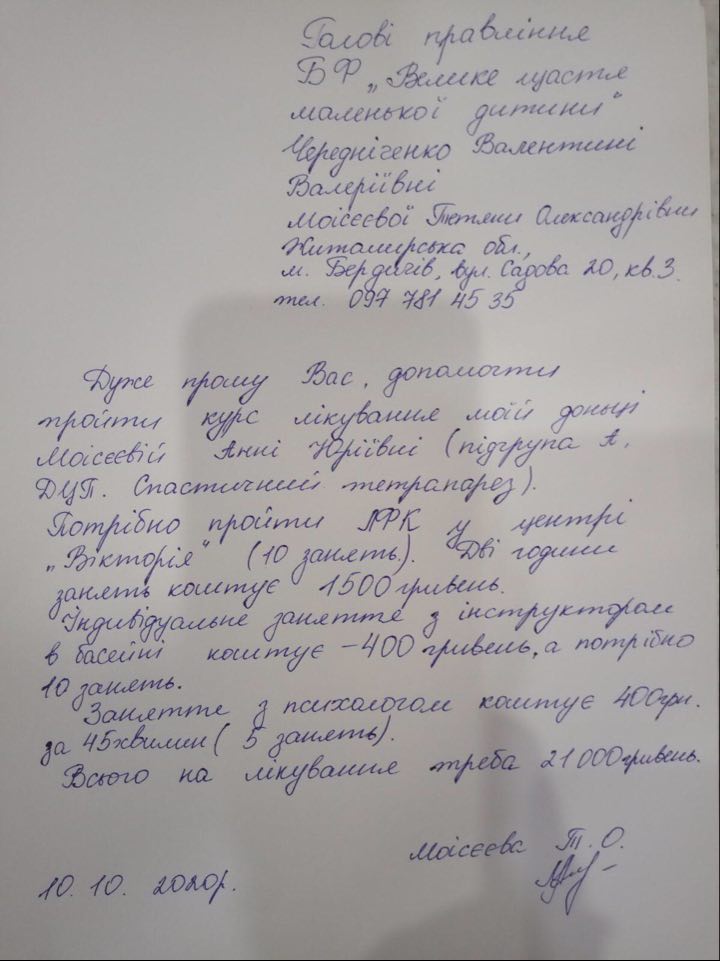 Голові правління
БФ „Велике щастя
маленької дитини"
Чередніченко Валентині
Валеріївні
Моісєєвої Тетяни Олександрівни
Житомирська обл.,
м. Бердичів, вул. Садова 20, кв. 3.
тел. 097 781 45 35
Дуже прошу Вас, допомогти
пройти курс лікування моїй доньці
Моісєєвій Анні Юріївні (підгрупа А,
ДЦП. Спастичний тетрапарез).
Потрібно пройти ЛФК у центрі
„Вікторія" (10 занять). Дві години
занять коштує 1500 гривень.
Індивідуальне заняття з інструктором
в басейні коштує – 400 гривень, а потрібно
10 занять.
Заняття з психологом коштує 400грн.
за 45хвилин ( 5 занять).
Всього на лікування треба 21 000 гривень.
Моісєєва Т. О.
10. 10. 2020р.